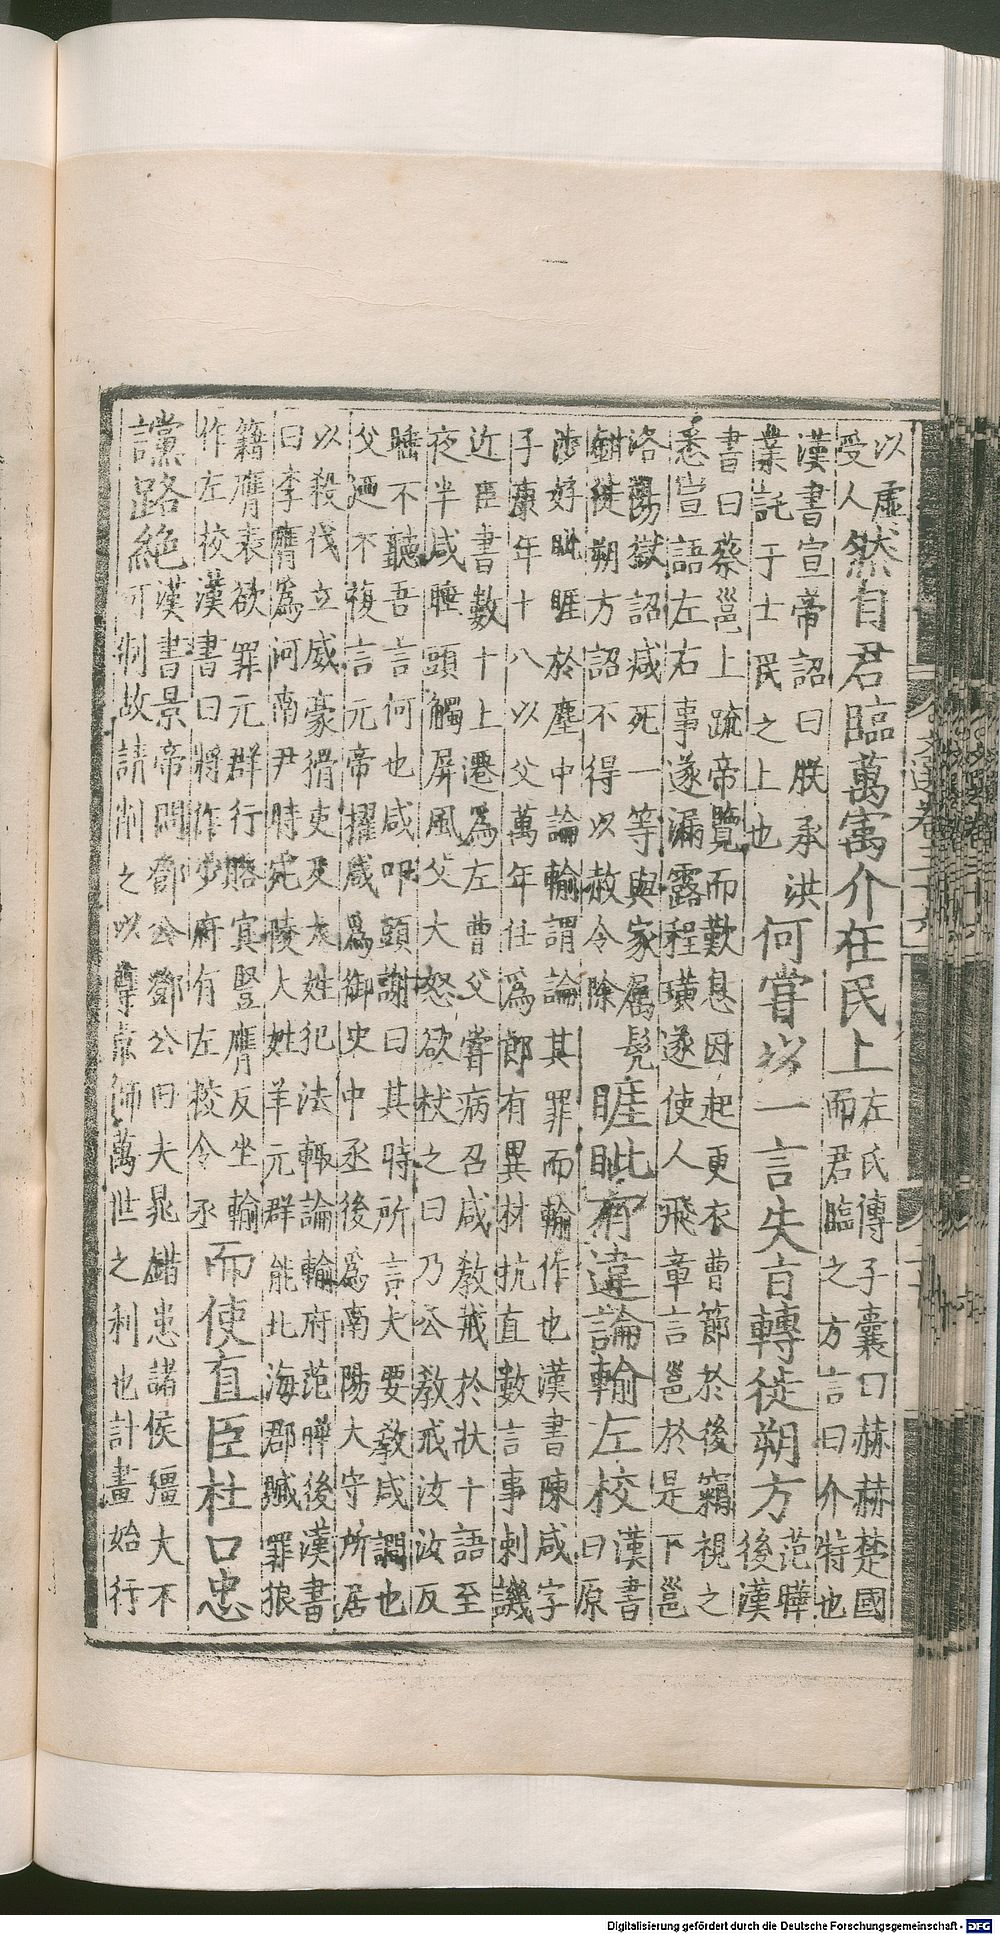 以虛
受人
然自君臨萬寓介在民上
左氏傳子囊曰赫赫楚國
而君臨之方言曰介特也
漢書宣帝詔曰朕承洪
業託于士民之上也
何嘗以一言失旨轉徙朔方
范曄
後漢
書曰蔡邕上疏帝覽而歎息因起更衣曹節於後竊視之
悉宣語左右事遂漏露程璜遂使人飛章言邕於是下邕
洛陽獄詔減死一等與家屬髡
鉗徙朔方詔不得以赦令除
睚眦有違論輸左校
漢書
曰原
涉好眦睚於塵中論輸謂論其罪而輸作也漢書陳咸字
子康年十八以父萬年任為郎有異材抗直數言事刺譏
近臣書數十上遷為左曹父嘗病召咸教戒於狀十語至
夜半咸睡頭觸屏風父大怒欲杖之曰乃公教戒汝汝反
睡不聽吾言何也咸叩頭謝曰其時所言大要教咸讇也
父廼不複言元帝擢咸為御史中丞後為南陽大守所居
以殺伐立威豪猾吏及大姓犯法輒論輸府范曄後漢書
曰李膺為河南尹時宛陵大姓羊元群能北海郡贓罪狼
籍膺表欲罪元群行賂宦豎膺反坐輸
作左校漢書曰將作少府有左校令丞
而使直臣杜口忠
讜路絕
漢書景帝問鄧公鄧公曰夫晁錯患諸侯彊大不
可制故請削之以尊京師萬世之利也計畫始行
Digitalisierung gefördert durch die Deutsche Forschungsgemeinschaft - DFG